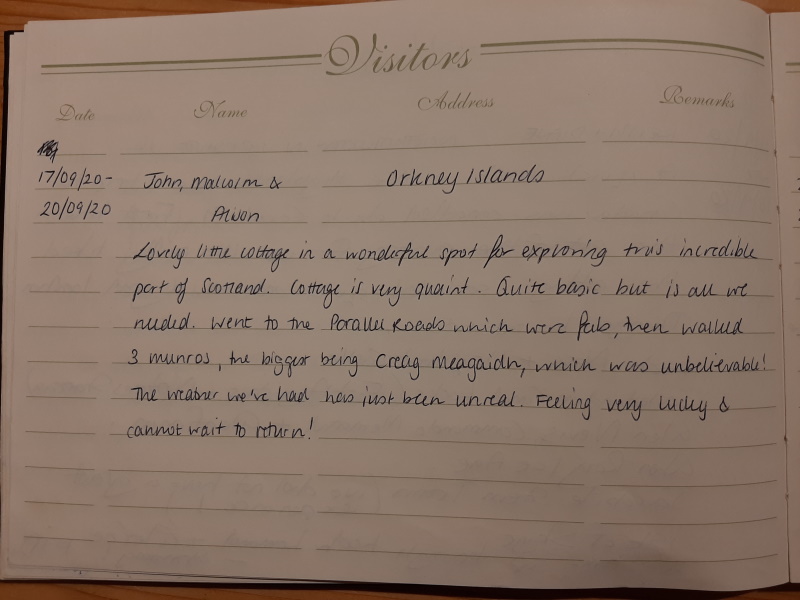 Visitors
Date Name Address Remarks
17/09/20- John, Malcolm & Orkney Islands
20/09/20
Lovely little cottage in a wonderful spot for exploring this incredible
part of Scotland. Cottage is very quaint. Quite basic but is all we
needed. Went to the Parallel Roads which were fab, then walked
3 munros, the biggest being Creag Meagaidh, which was unbelievable!
The weather we've had has just been unreal. Feeling very lucky &
cannot wait to return!